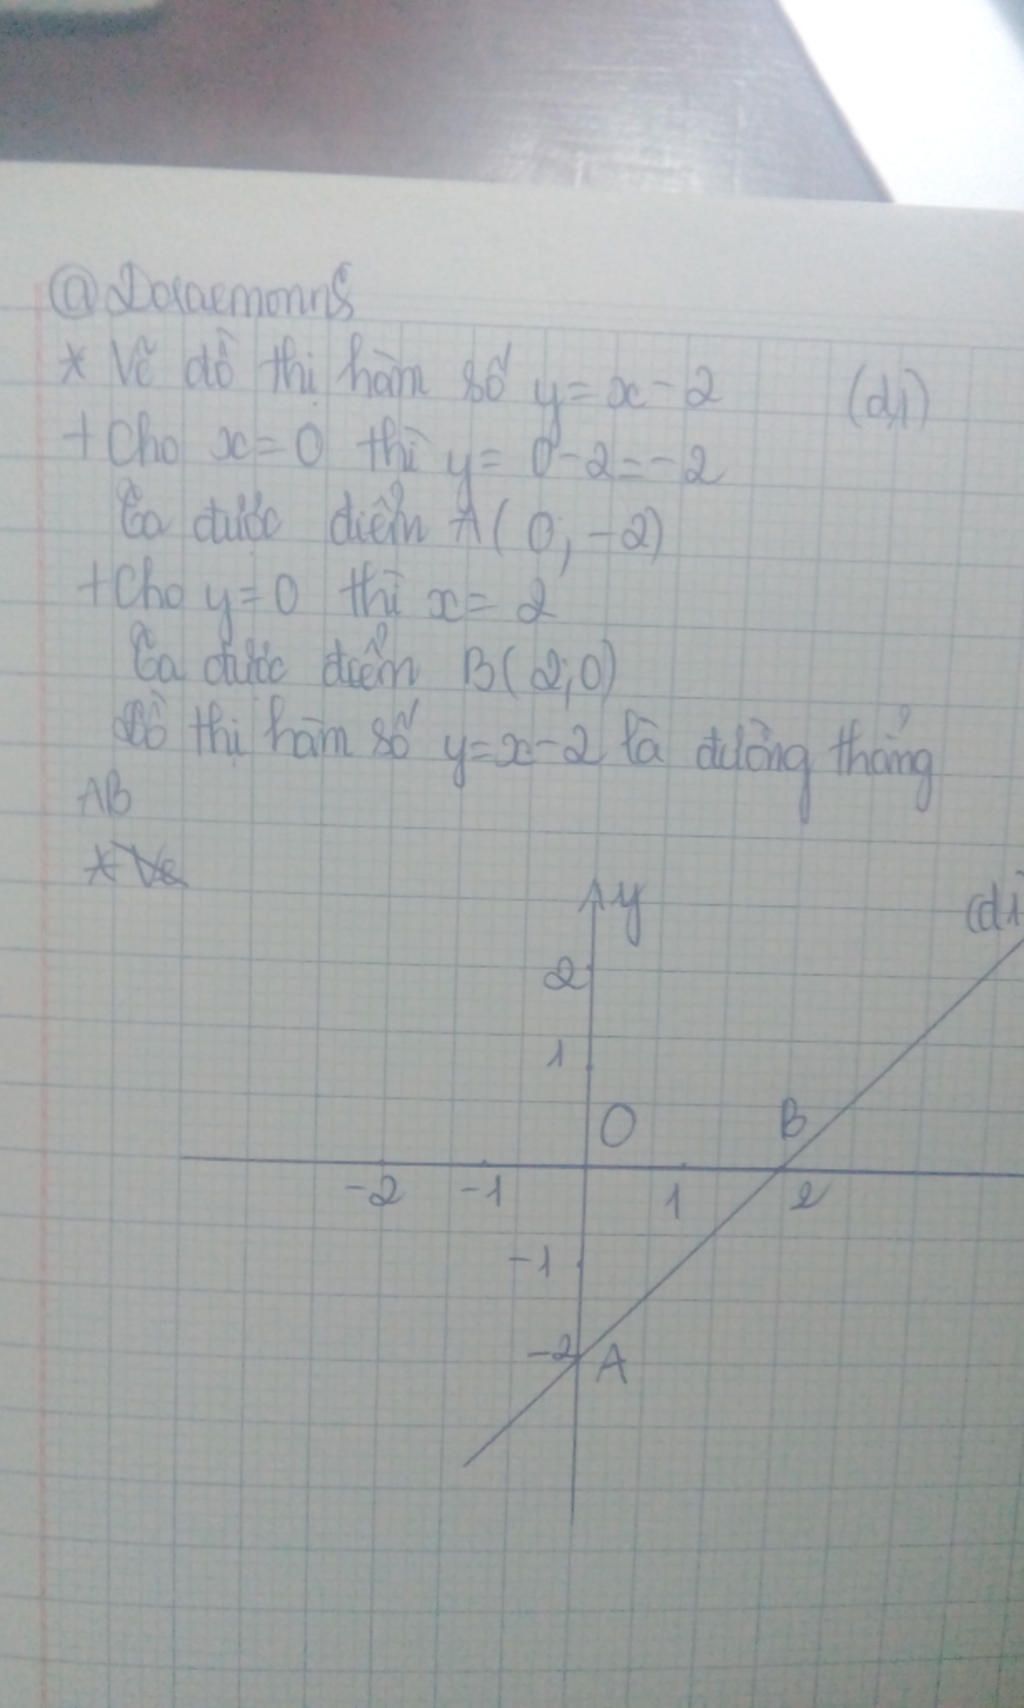 @DoraemonnS
* Vẽ đồ thị hàm số y = x - 2 (d1)
+ Cho x = 0 thì y = 0 - 2 = -2
Ta được điểm A(0; -2)
+ Cho y = 0 thì x = 2
Ta được điểm B(2; 0)
Đồ thị hàm số y = x - 2 là đường thẳng
AB
*
y
(d1
2
1
O
B
-2
-1
1
2
-1
-2
A